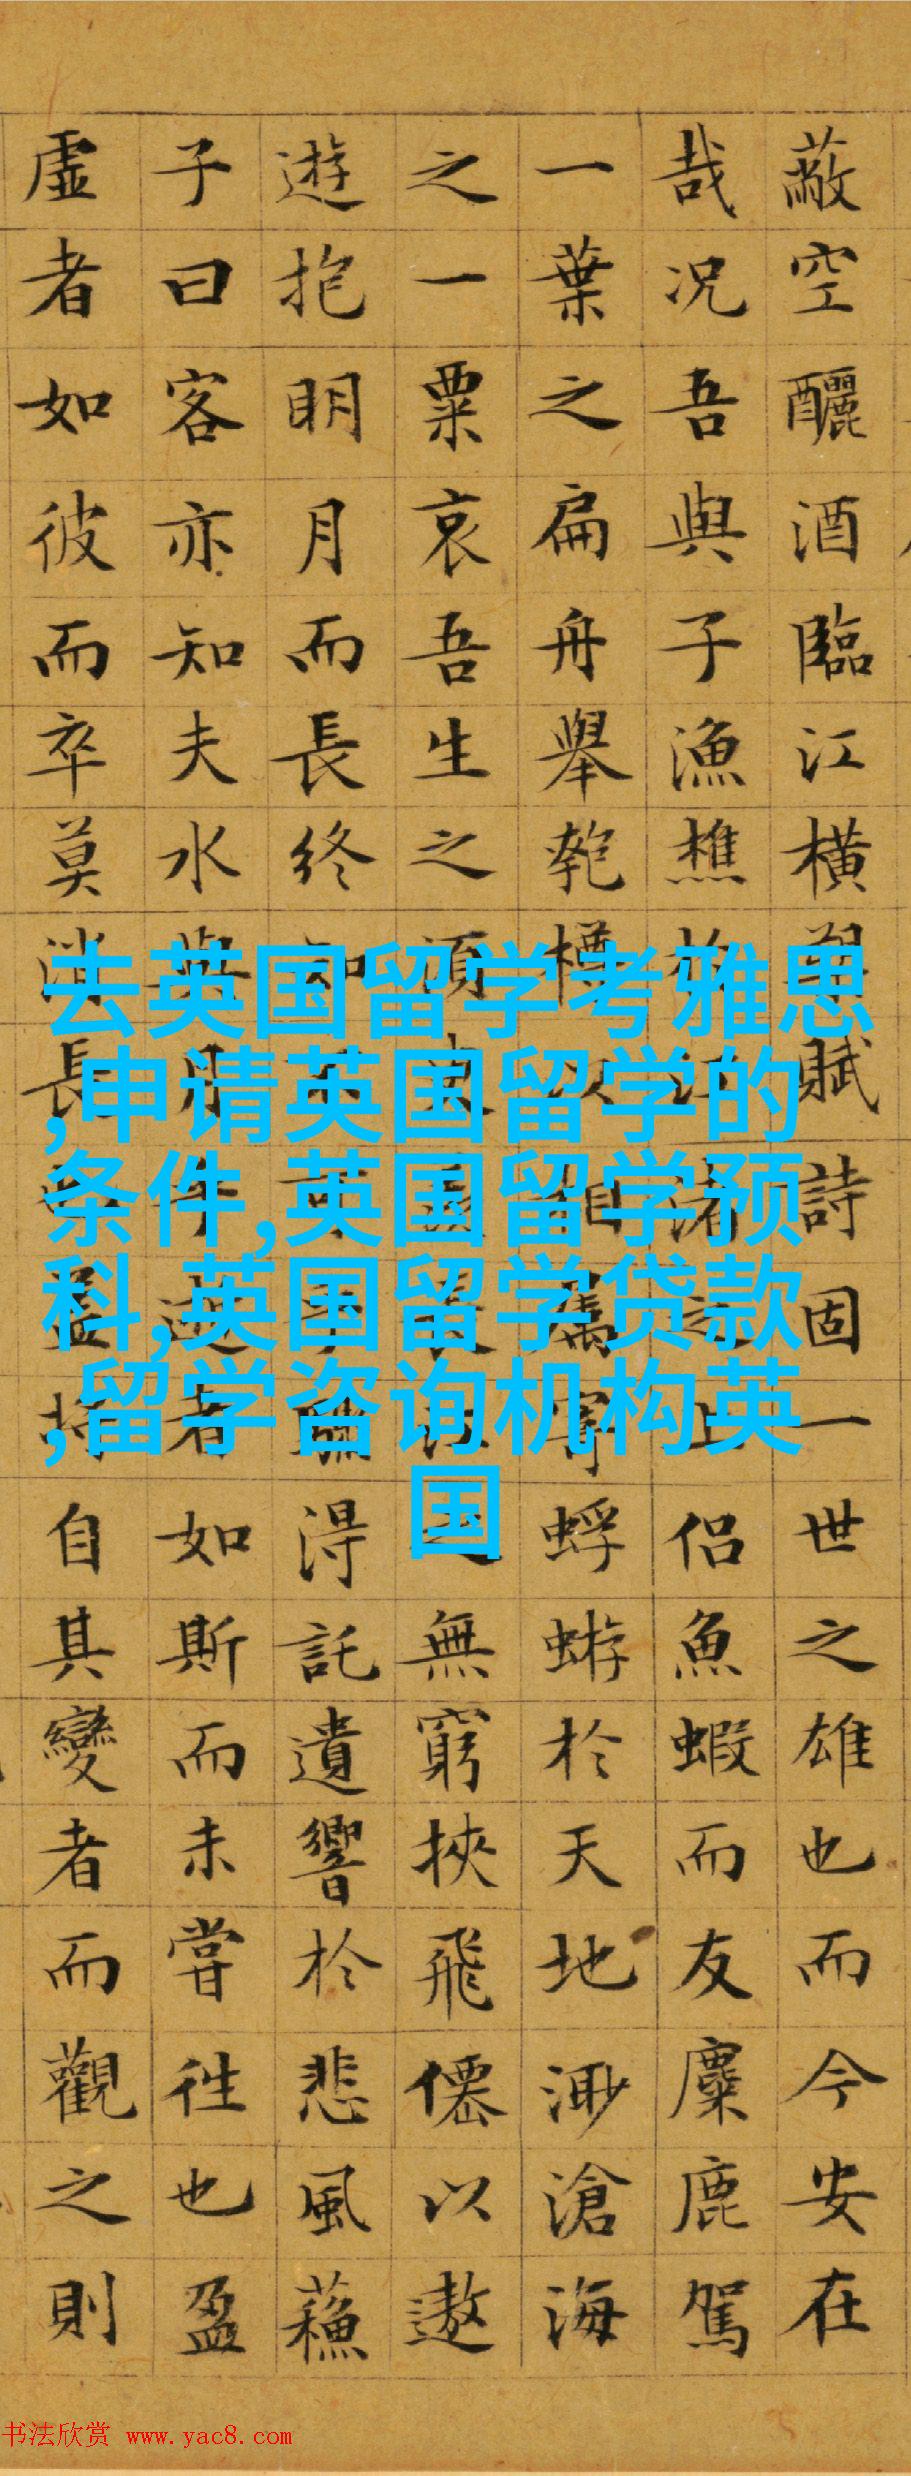 蔽空釃酒臨江橫槊賦詩固一世之雄也而今安在
哉况吾與子漁樵於江渚之上侣魚蝦而友麋鹿駕
一葉之扁舟舉匏樽以相屬寄蜉蝣於天地渺滄海
之一粟哀吾生之須臾羨長江之無窮挾飛僊以遨
遊抱明月而長終知不可乎驟得託遺響於悲風蘓
子曰客亦知夫水與月乎逝者如斯而未嘗往也盈
虛者如彼而卒莫消長也盖將自其變者而觀之則
去英国留学考雅思
,申请英国留学的
条件,英国留学预
科,英国留学贷款
,留学咨询机构英
国
书法欣赏 www.yac8.com